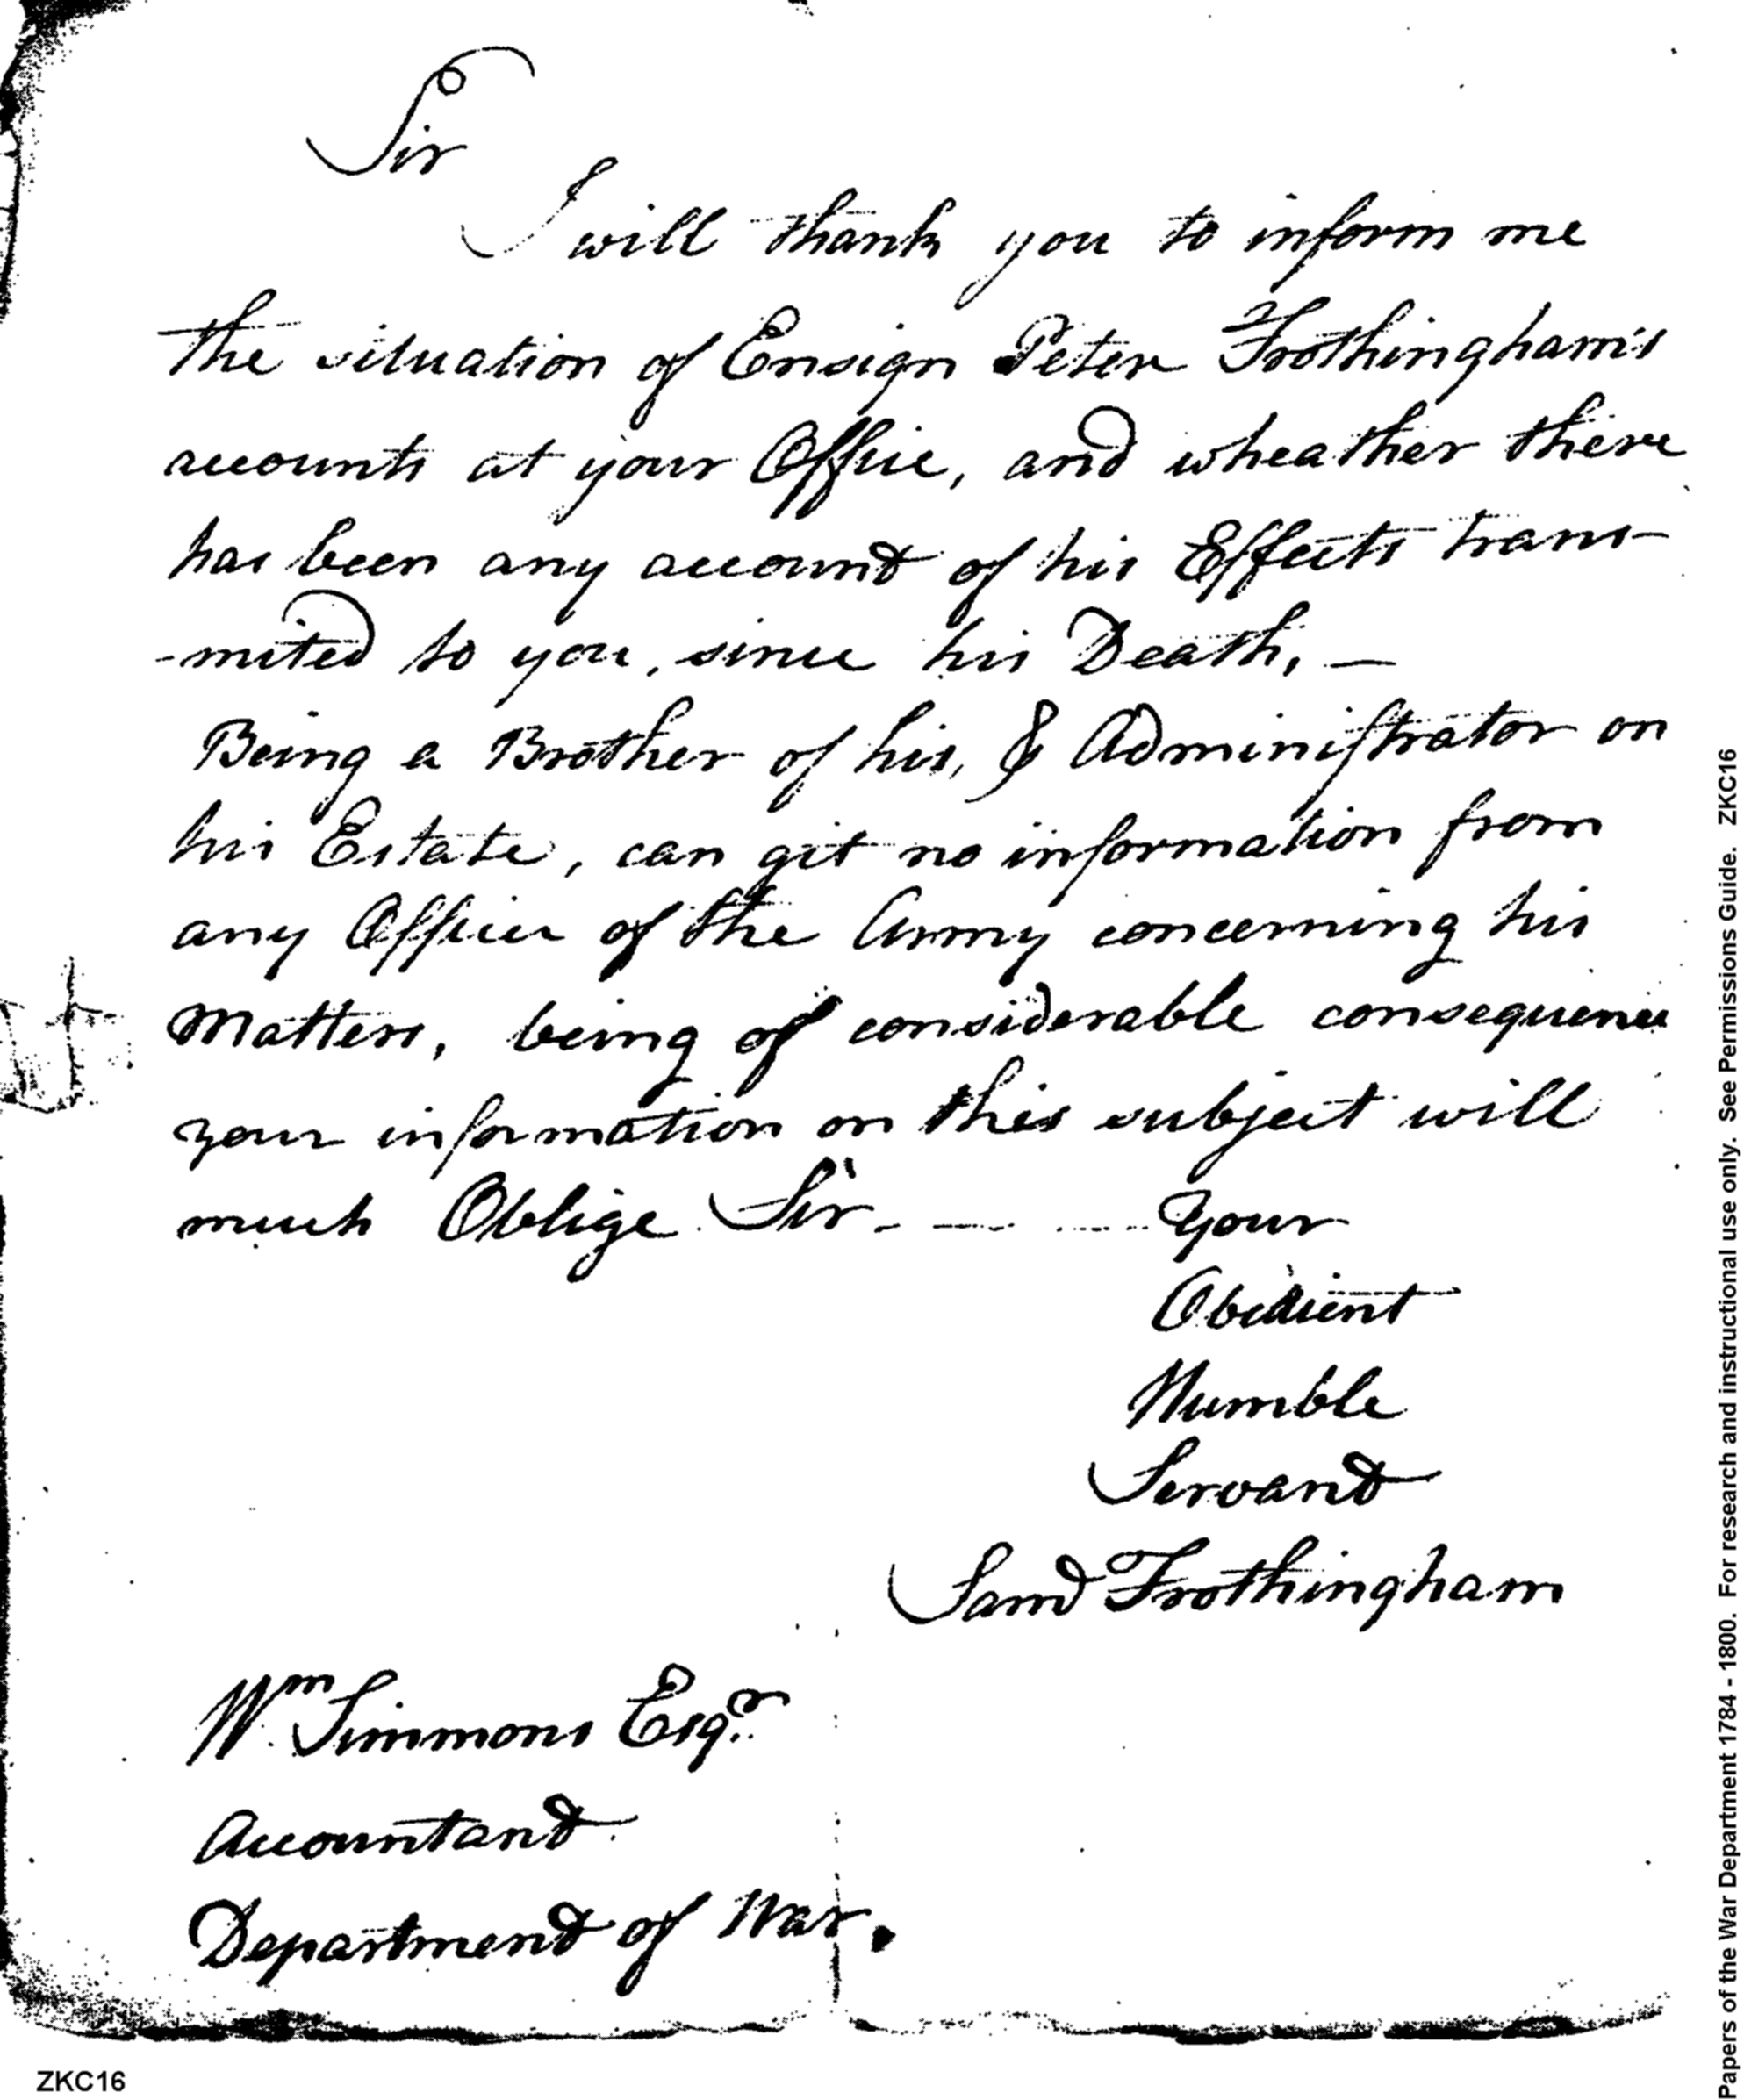 Sir
I will thank you to inform me
the situation of Ensign Peter Frothingham's
accounts at your Office, and wheather there
has been any account of his Effects trans-
-mited to you, since his Death, —
Being a Brother of his, & Administrator on
his Estate, can git no information from
any Officer of the Army concerning his
Matters, being of considerable consequence
your information on this subject will
much Oblige Sir - — — Your
Obedient
Humble
Servant
Saml Frothingham
Wm Simmons Esqr.
Accountant
Department of War.
ZKC16
Papers of the War Department 1784 - 1800. For research and instructional use only. See Permissions Guide. ZKC16